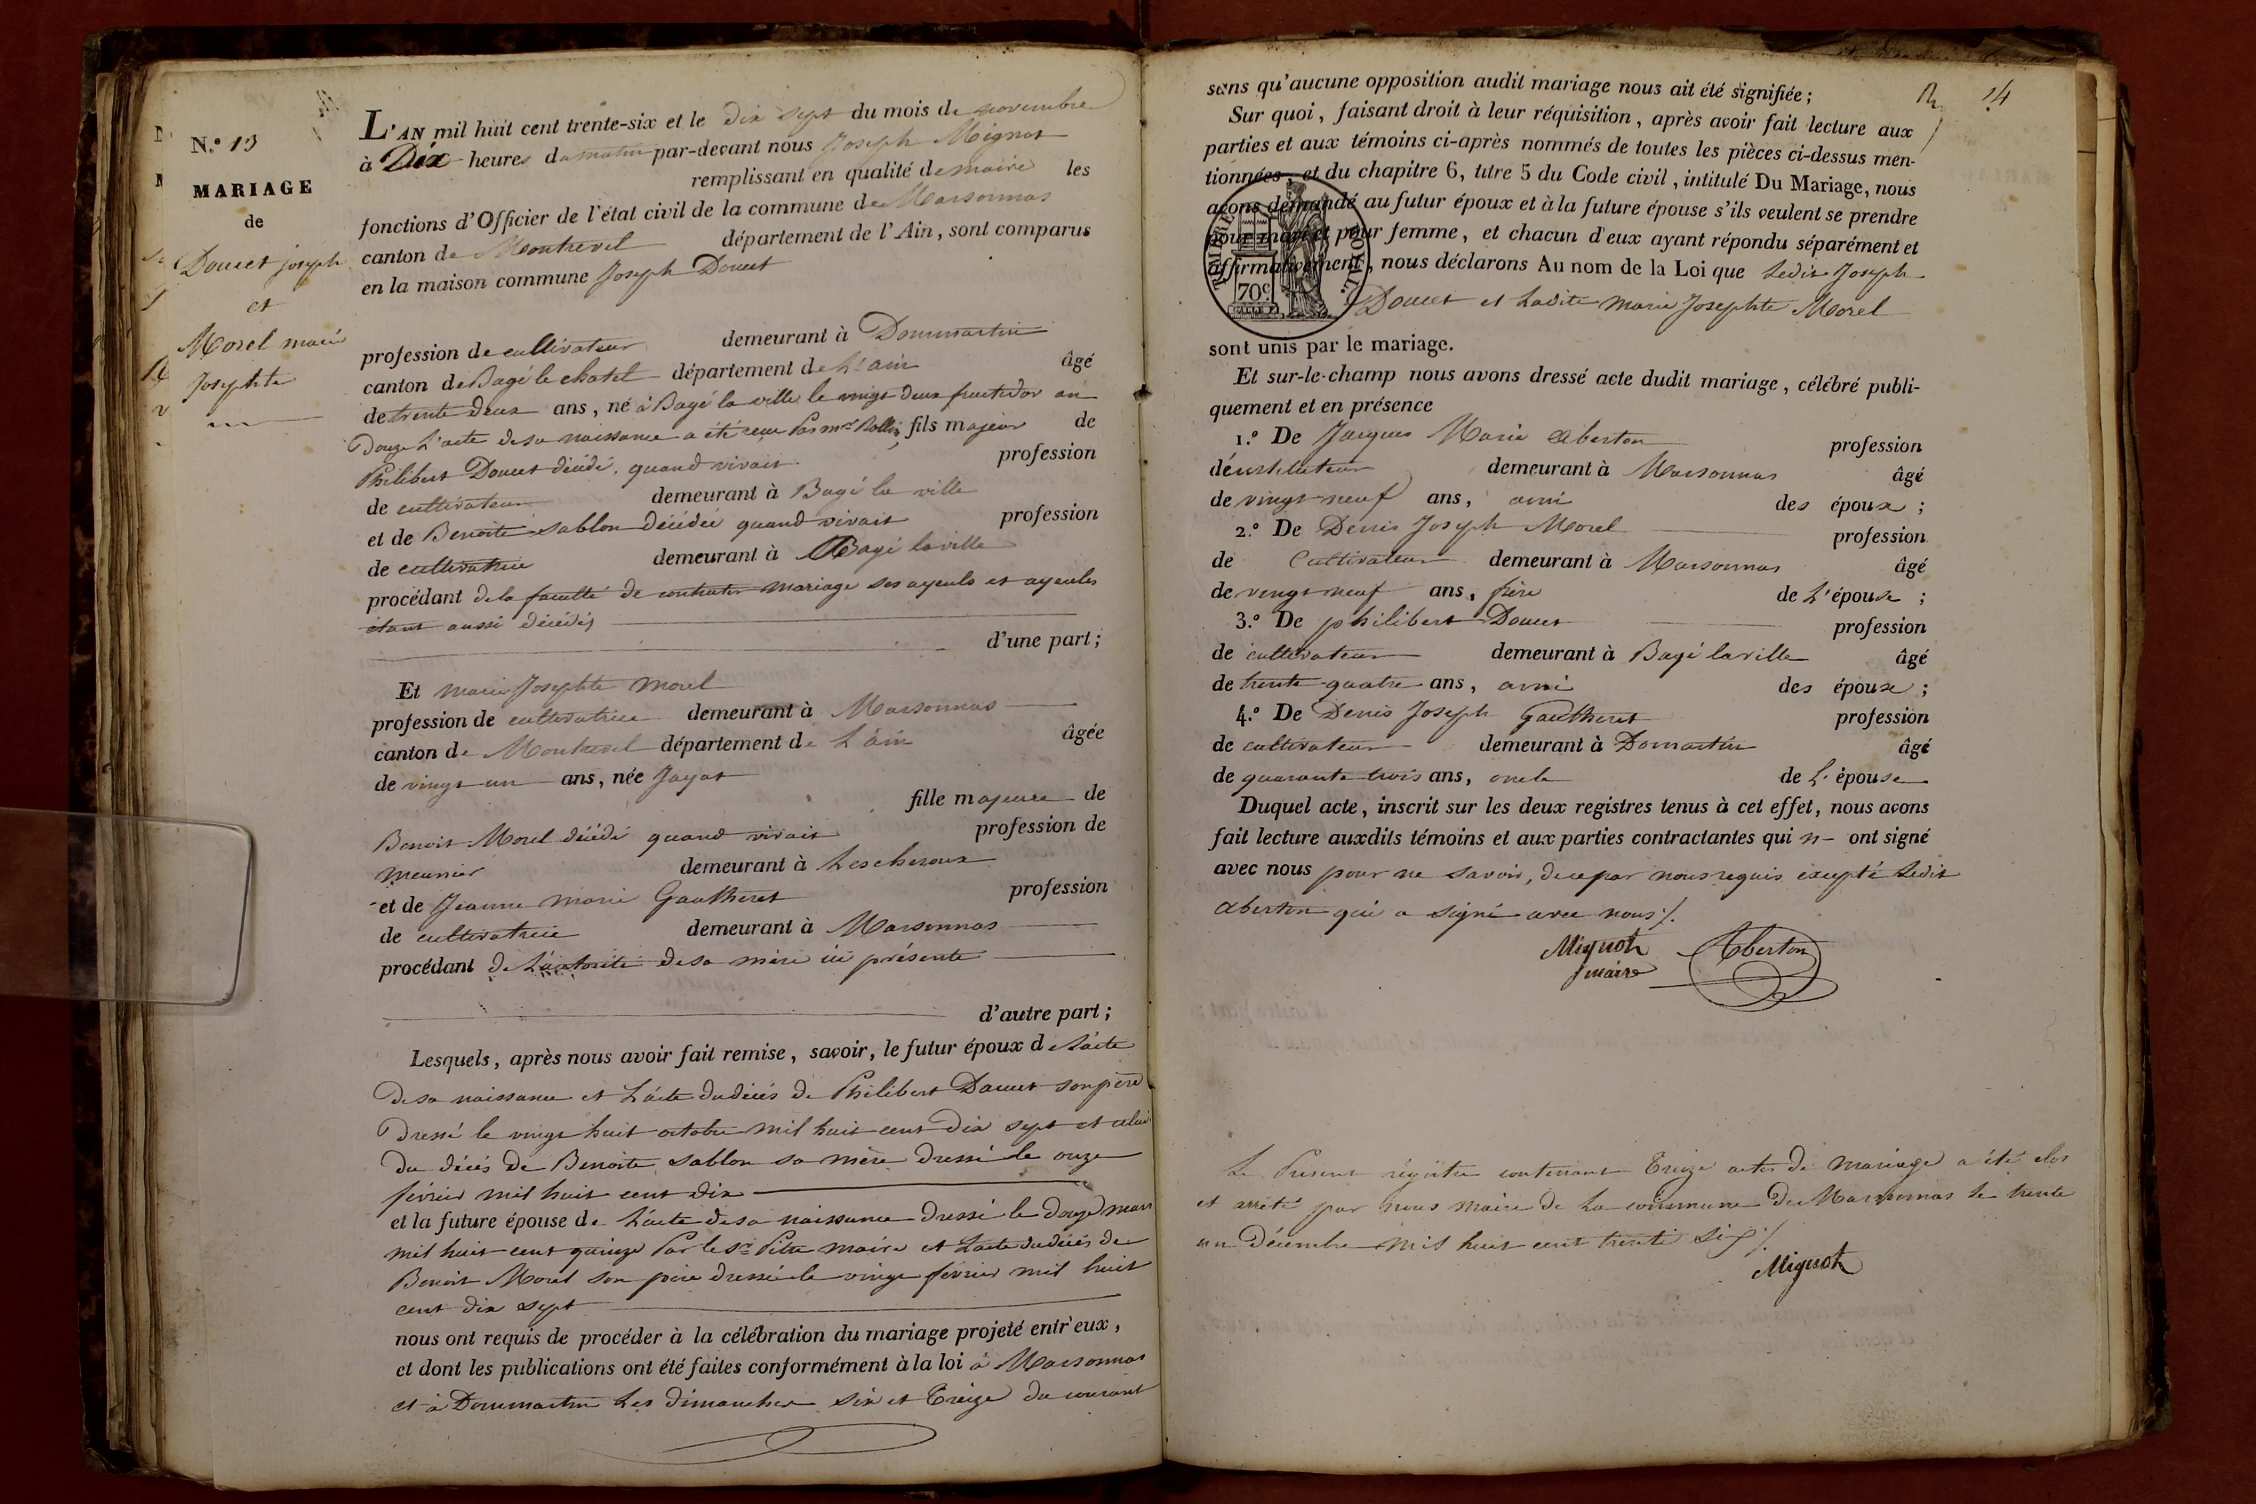 N.º 13
MARIAGE
de
Doucet joseph
et
Morel marie
Josephte
L'AN mil huit cent trente-six et le dix sept du mois de novembre
à Dix heures du matin par-devant nous Joseph Mignot
remplissant en qualité de maire les
fonctions d'Officier de l'état civil de la commune de Marsonnas
canton de Montrevel département de l'Ain, sont comparus
en la maison commune Joseph Doucet
profession de cultivateur demeurant à Dommartin
canton de Bagé le chatel département de L'ain âgé
de trente deux ans, né à Bagé la ville le vingt deux fructidor an
Douze L'acte de sa naissance a été reçu Par mr Rollin, fils majeur de
Philibert Doucet décédé, quand vivait profession
de cultivateur demeurant à Bagé la ville
et de Benoite sablon décédée quand vivait profession
de cultivatrice demeurant à Bagé la ville
procédant de la faculté de contracter mariage ses ayeuls et ayeules
étant aussi décédés
d'une part;
Et marie Josephte morel
profession de cultivatrice demeurant à Marsonnas
canton de Montrevel département de L'ain âgée
de vingt un ans, née Jayat
fille majeure de
Benoit Morel décédé quand vivait profession de
meunier demeurant à Lescheroux
et de Jeanne marie Gautheret profession
de cultivatrice demeurant à Marsonnas
procédant de L'autorité de sa mère ici présente
d'autre part;
Lesquels, après nous avoir fait remise, savoir, le futur époux de L'acte
de sa naissance et L'acte du décés de Philibert Doucet son père
Dressé le vingt huit octobre mil huit cent dix sept et celui
du décés de Benoite sablon sa mère dressé le onze
février mil huit cent dix
et la future épouse de L'acte de sa naissance dressé le douze mars
mil huit cent quinze Par le sr Pitre maire et L'acte du décés de
Benoit Morel son père dressé le vingt février mil huit
cent dix sept
nous ont requis de procéder à la célébration du mariage projeté entr'eux,
et dont les publications ont été faites conformément à la loi à Marsonnas
et à Dommartin Les dimanches six et Treize du courant
14
sans qu'aucune opposition audit mariage nous ait été signifiée;
Sur quoi, faisant droit à leur réquisition, après avoir fait lecture aux
parties et aux témoins ci-après nommés de toutes les pièces ci-dessus men-
tionnées, et du chapitre 6, titre 5 du Code civil, intitulé Du Mariage, nous
avons demandé au futur époux et à la future épouse s'ils veulent se prendre
pour mari et pour femme, et chacun d'eux ayant répondu séparément et
affirmativement, nous déclarons Au nom de la Loi que Ledit Joseph
Doucet et Ladite marie Josephte Morel
TIMBRE ROYAL.
70c
sont unis par le mariage.
Et sur-le-champ nous avons dressé acte dudit mariage, célébré publi-
quement et en présence
1.º De Jacques Marie Aberton profession
demeurant à Marsonnas âgé
de vingt neuf ans, ami des époux;
2.º De Denis Joseph Morel profession
de Cultivateur demeurant à Marsonnas âgé
de vingt neuf ans, frère de L'épouse;
3.º De philibert Doucet profession
de cultivateur demeurant à Bagé la ville âgé
de trente quatre ans, ami des époux;
4.º De Denis Joseph Gautheret profession
de cultivateur demeurant à Domartin âgé
de quarante trois ans, oncle de L'épouse
Duquel acte, inscrit sur les deux registres tenus à cet effet, nous avons
fait lecture auxdits témoins et aux parties contractantes qui n- ont signé
avec nous pour ne savoir, de ce par nous requis excepté Ledit
Aberton qui a signé avec nous
Mignot Aberton
maire
Le Présent régistre contenant Treize actes de mariage a été clos
et arrêté par nous maire de La commune de Marsonnas le trente
un Décembre mil huit cent trente six
Mignot